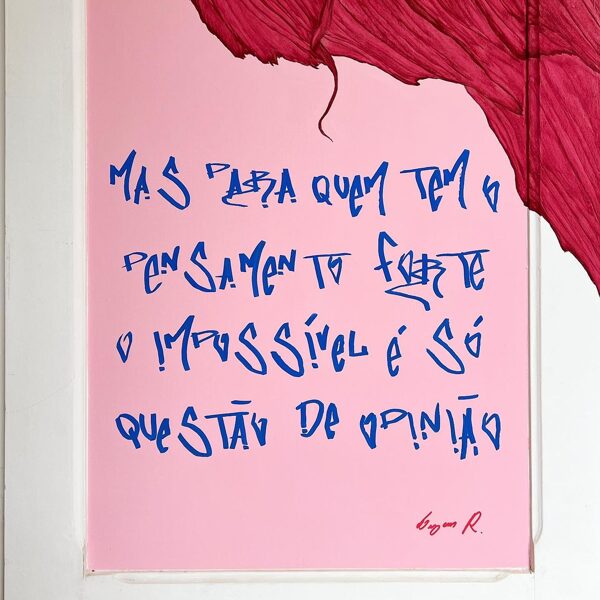 MAS PARA QUEM TEM O
PENSAMENTO FORTE
O IMPOSSÍVEL É SÓ
QUESTÃO DE OPINIÃO
R.